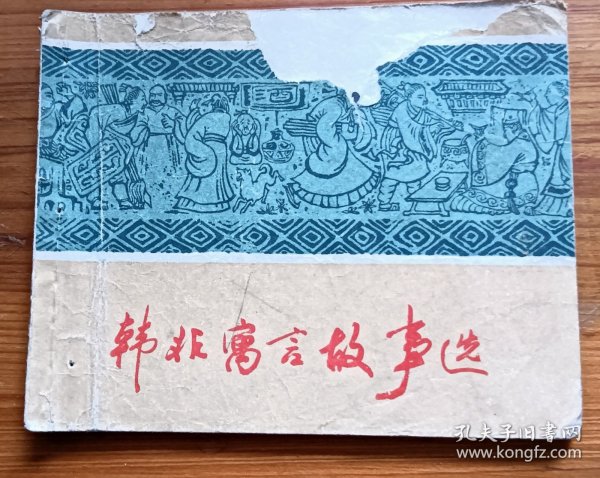 韩非寓言故事选
孔夫子旧书网
www.kongfz.com